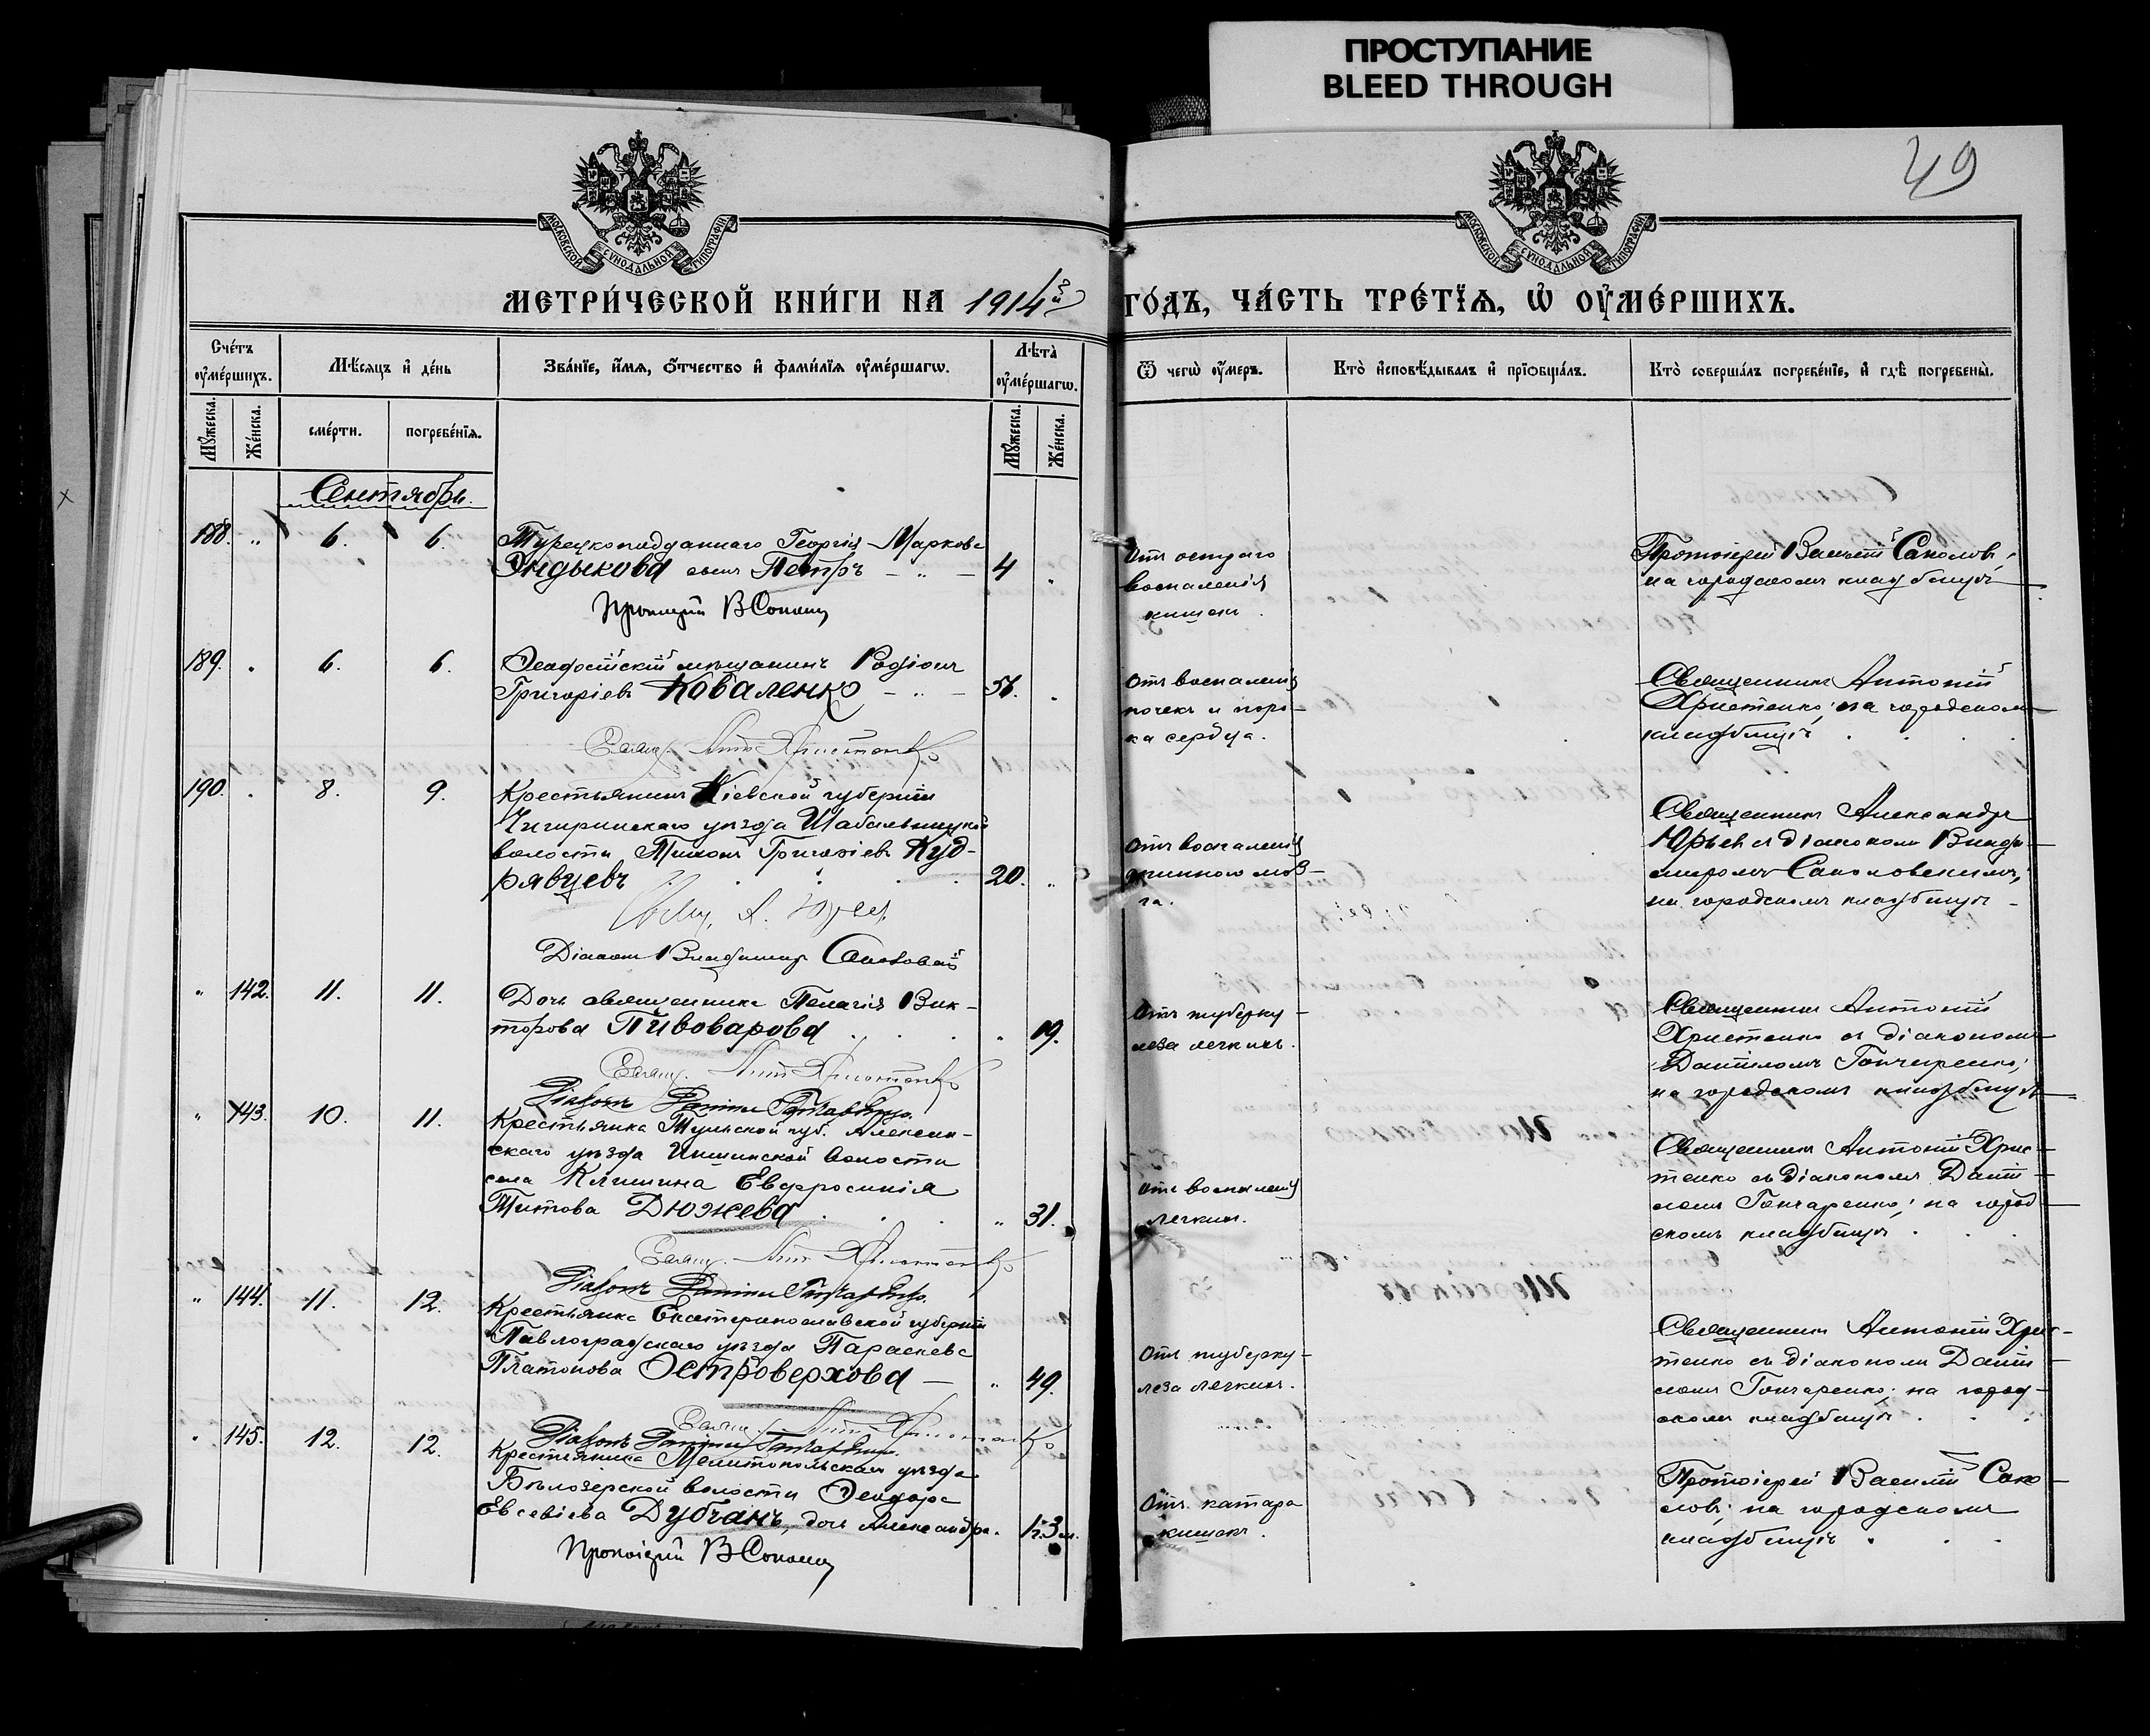 ПРОСТУПАНИЕ
BLEED THROUGH
49
МОСКОВСКОЙ СѴНОДАЛЬНОЙ ТИПОГРАФІИ
МОСКОВСКОЙ СѴНОДАЛЬНОЙ ТИПОГРАФІИ
МЕТРИ́ЧЕСКОЙ КНИ́ГИ НА 1914й
ГО́ДЪ, ЧА́СТЬ ТРЕ́ТЇѦ, Ѡ҆ ОУ҆МЕ́РШИХЪ.
Сче́тъ оу҆ме́ршихъ.
Мѣ́сяцъ и҆ де́нь
Зва́нїе, и҆́мя, ѻ҆́тчество и҆ фами́лїя оу҆ме́ршагѡ.
Лѣта̀ оу҆ме́ршагѡ.
Ѿ чегѡ̀ оу҆́меръ.
Кто̀ и҆сповѣ́дывалъ и҆ прїѡбща́лъ.
Кто̀ соверша́лъ погребе́нїе, и҆ гдѣ̀ погребены̀.
Мꙋ́жеска.
Же́нска.
сме́рти.
погребе́нїя.
Мꙋ́жеска.
Же́нска.
Сентябрь.
188. " 6. 6. Турецкоподданнаго Георгія Маркова
Эндыкова сынъ Петръ — " — 4 .
Протоіерей В Соколов
Отъ остраго
воспаленія
кишекъ.
Протоіерей Василій Соколовъ;
на городскомъ кладбищѣ
189. . 6. 6. Ѳеодосійскій мѣщанинъ Родіонъ
Григоріевъ Коваленко — " — 56. .
Свящ. Ант Христенко
Отъ воспаленія
почекъ и поро-
ка сердца.
Священникъ Антоній
Христенко; на городскомъ
кладбищѣ
190. . 8. 9. Крестьянинъ Кіевской губерніи
Чигиринскаго уѣзда Шабельницкой
волости Тихонъ Григоріевъ Куд-
рявцевъ 20. "
Свящ. А. Юрьев
Діаконъ Владимир
Отъ воспаленія
спинного моз-
га.
Священникъ Александръ
Юрьевъ съ діакономъ Влади-
миромъ Соколовскимъ;
на городскомъ кладбищѣ
" 142. 11. 11. Дочь священника Пелагія Вик-
торова Пивоварова . . . 19.
Свящ. Ант Христенко
Діаконъ Даниилъ Гончаренко.
Отъ туберку-
леза легкихъ.
Священникъ Антоній
Христенко съ діакономъ
Даніиломъ Гончаренко;
на городскомъ кладбищѣ
" 143. 10. 11. Крестьянка Тульской губ. Алексин-
скаго уѣзда Ишинской волости
села Клишина Евфросинія
Титова Дюжева . . . " 31.
Свящ. Ант Христенко
Діаконъ Даниилъ Гончаренко.
Отъ воспаленія
легкихъ.
Священникъ Антоній Хрис-
тенко съ діакономъ Даніи-
ломъ Гончаренко; на город-
скомъ кладбищѣ
" 144. 11. 12. Крестьянка Екатеринославской губерніи
Павлоградскаго уѣзда Параскева
Платонова Островерхова — " 49.
Свящ. Ант Христенко
Діаконъ Даниилъ Гончаренко.
Отъ туберку-
леза легкихъ.
Священникъ Антоній Хрис-
тенко съ діакономъ Даніи-
ломъ Гончаренко; на город-
скомъ кладбищѣ
" 145. 12. 12. Крестьянина Мелитопольскаго уѣзда
Бѣлозерской волости Ѳеодора
Евсевіева Дубчакъ, дочь Александра. 1г.3м.
Протоіерей В Соколов
Отъ катара
кишекъ.
Протоіерей Василій Соко-
ловъ; на городскомъ
кладбищѣ